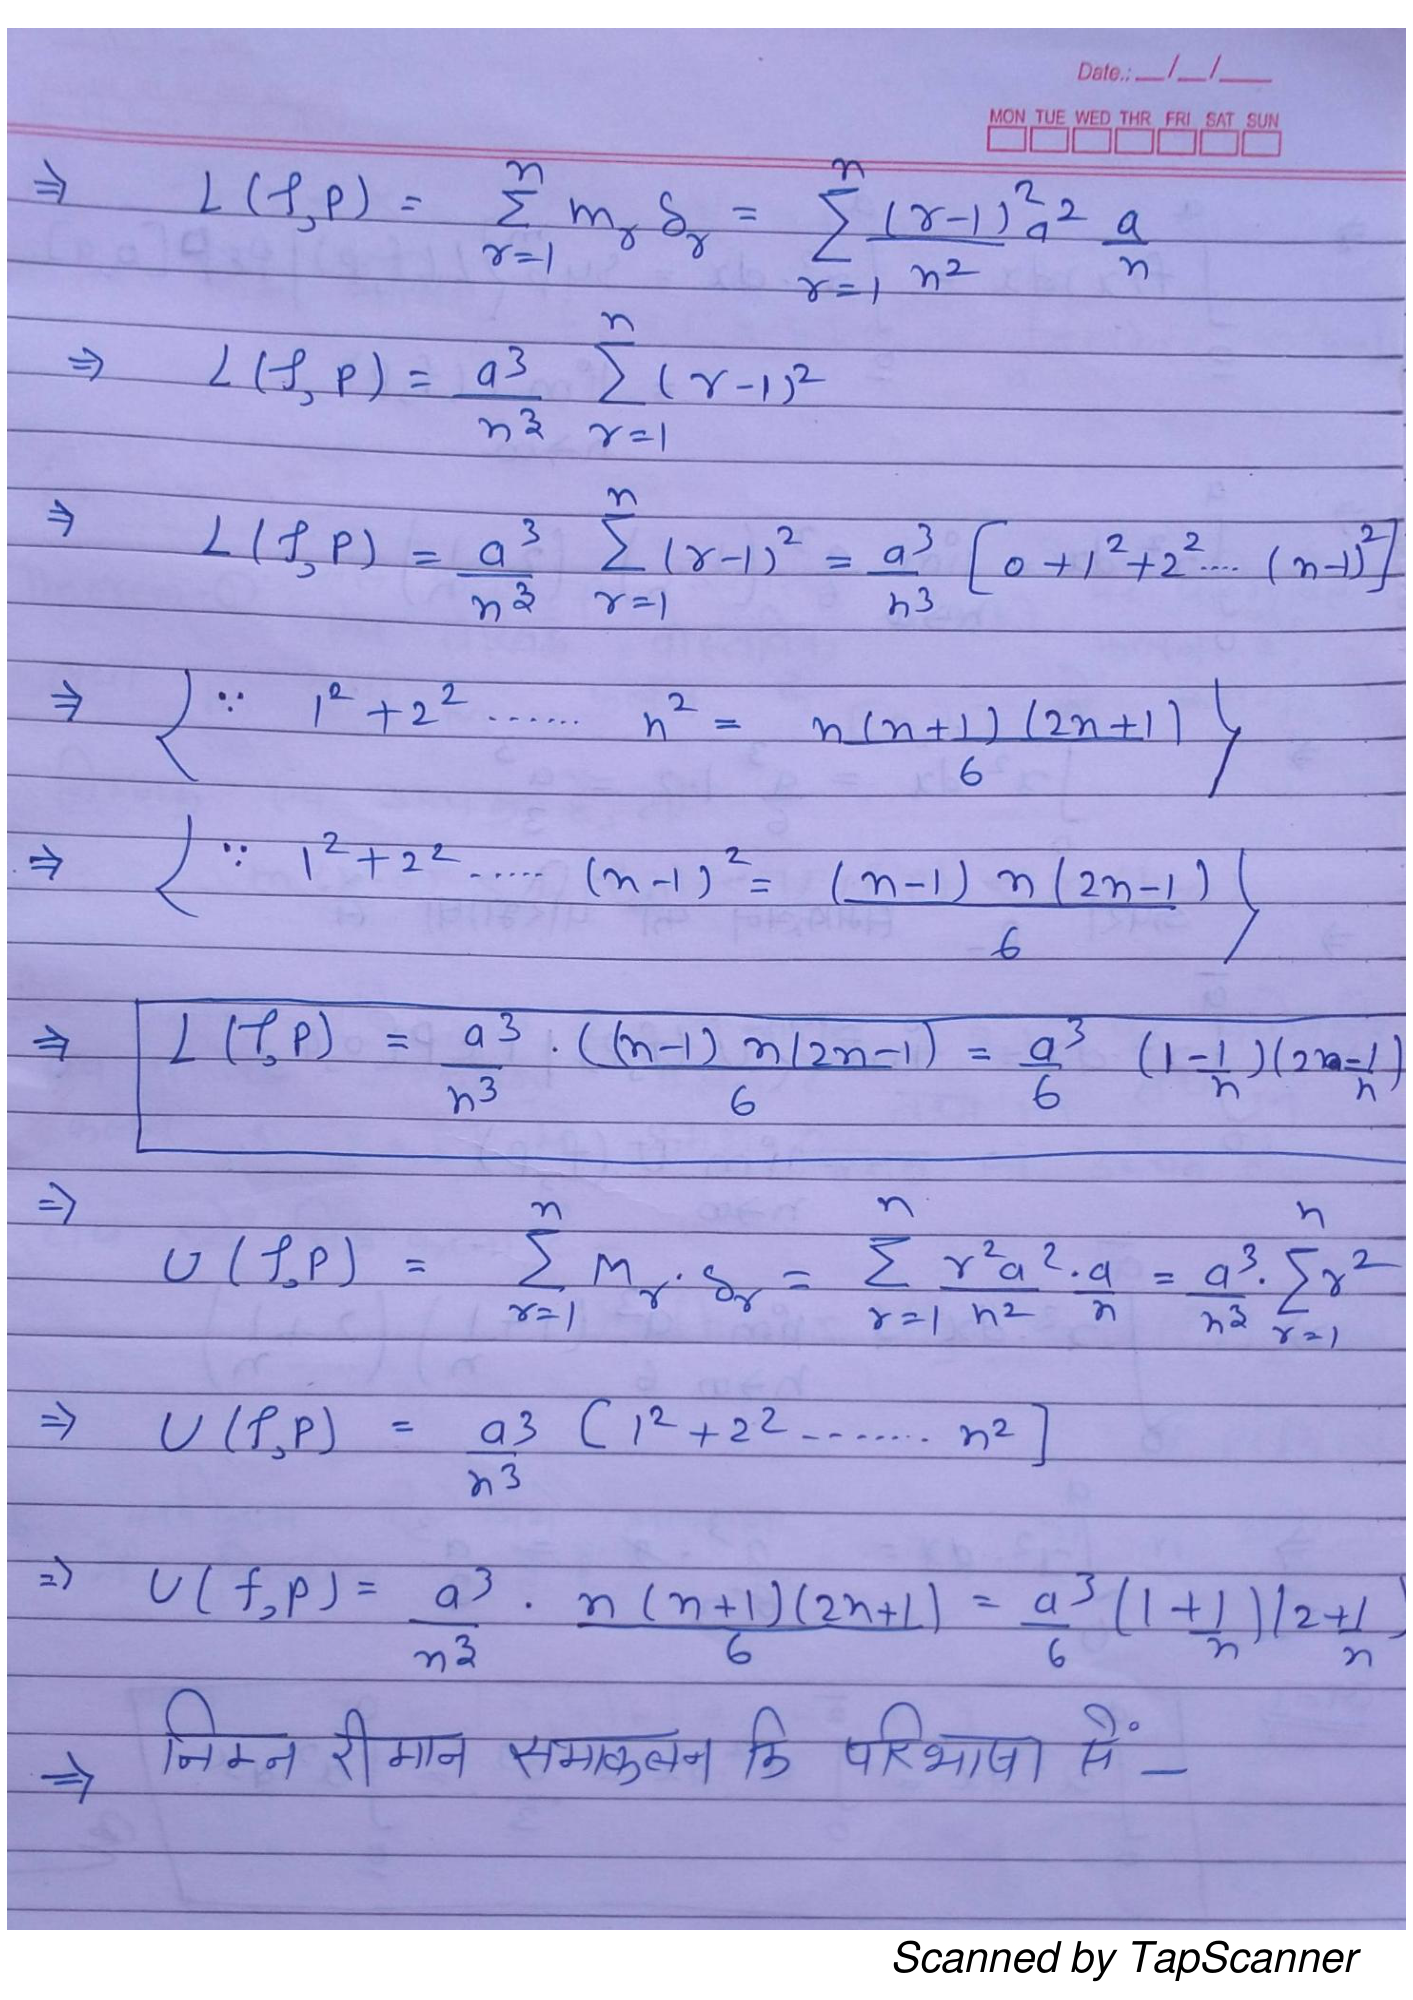 Date.: __/__/__
MON TUE WED THR FRI SAT SUN
⇒ L(f,P) = \sum_{r=1}^{n} m_r δ_r = \sum_{r=1}^{n} \frac{(r-1)^2 a^2}{n^2} \frac{a}{n}
⇒ L(f,P) = \frac{a^3}{n^3} \sum_{r=1}^{n} (r-1)^2
⇒ L(f,P) = \frac{a^3}{n^3} \sum_{r=1}^{n} (r-1)^2 = \frac{a^3}{n^3} [0+1^2+2^2.... (n-1)^2]
⇒ {∵ 1^2+2^2...... n^2 = \frac{n(n+1)(2n+1)}{6}}
⇒ {∵ 1^2+2^2..... (n-1)^2 = \frac{(n-1) n (2n-1)}{6}}
⇒ L(f,P) = \frac{a^3}{n^3} . \frac{((n-1) n (2n-1)}{6} = \frac{a^3}{6} (1-\frac{1}{n})(2-\frac{1}{n})
⇒ U(f,P) = \sum_{r=1}^{n} M_r . δ_r = \sum_{r=1}^{n} \frac{r^2 a^2}{n^2} . \frac{a}{n} = \frac{a^3}{n^3} . \sum_{r=1}^{n} r^2
⇒ U(f,P) = \frac{a^3}{n^3} [1^2+2^2....... n^2]
⇒ U(f,P) = \frac{a^3}{n^3} . \frac{n(n+1)(2n+1)}{6} = \frac{a^3}{6} (1+\frac{1}{n})(2+\frac{1}{n})
⇒ निम्न रीमान समाकलन कि परिभाषा से‌ं –
Scanned by TapScanner